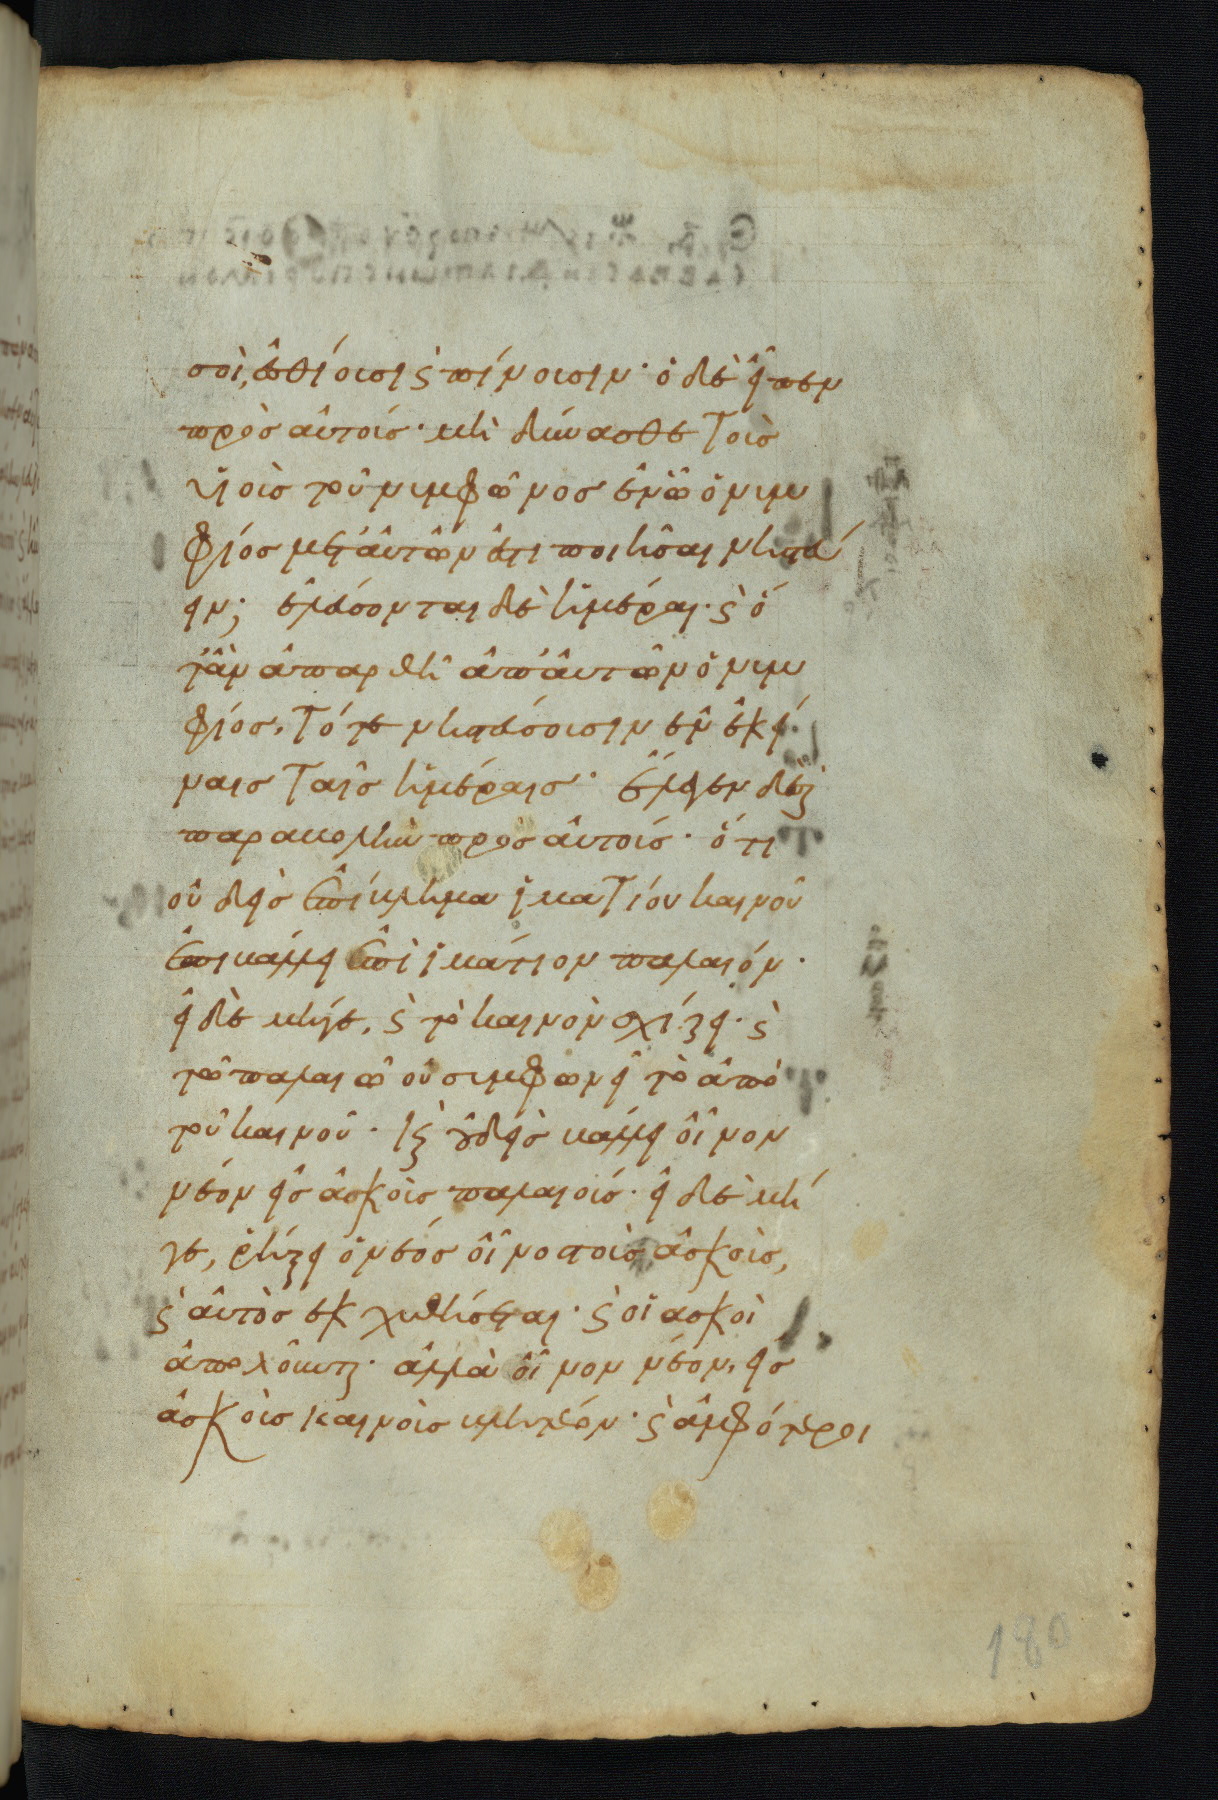 σοὶ, ἐσθίουσι ϗ πίνουσιν· ὁ δὲ εἶπεν
πρὸς αὐτούς· μὴ δύνασθε τοὺς
υἱοὺς τοῦ νυμφῶνος ἐν ᾧ ὁ νυμ
φίος μετ' αὐτῶν ἐστι ποιῆσαι νηστεύ
ειν; ἐλεύσονται δὲ ἡμέραι· ϗ ὅ
τἂν ἀπαρθῆ ἀπ' αὐτῶν ὁ νυμ
φίος, τότε νηστεύσουσιν ἐν ἐκεί
ναις ταῖς ἡμέραις· ἔλεγεν δὲ ϗ
παραβολὴν πρὸς αὐτούς· ὅτι
οὐδεὶς ἐπίβλημα ἱματίου καινοῦ
ἐπιβάλλει ἐπὶ ἱμάτιον παλαιόν·
εἰ δὲ μήγε, ϗ τὸ καινὸν σχίζει· ϗ
τῶ παλαιῶ οὐ συμφωνεῖ τὸ ἀπὸ
τοῦ καινοῦ· ϗ οὐδεὶς βάλλει οἶνον
νέον εἰς ἀσκοὺς παλαιούς· εἰ δὲ μή
γε, ῥήξει ὁ νέος οἶνος τοὺς ἀσκοὺς,
ϗ αὐτὸς ἐκχυθήσεται· ϗ οἱ ἀσκοὶ
ἀπολοῦνται· ἀλλὰ οἶνον νέον, εἰς
ἀσκοὺς καινοὺς βλητέον· ϗ ἀμφότεροι
180